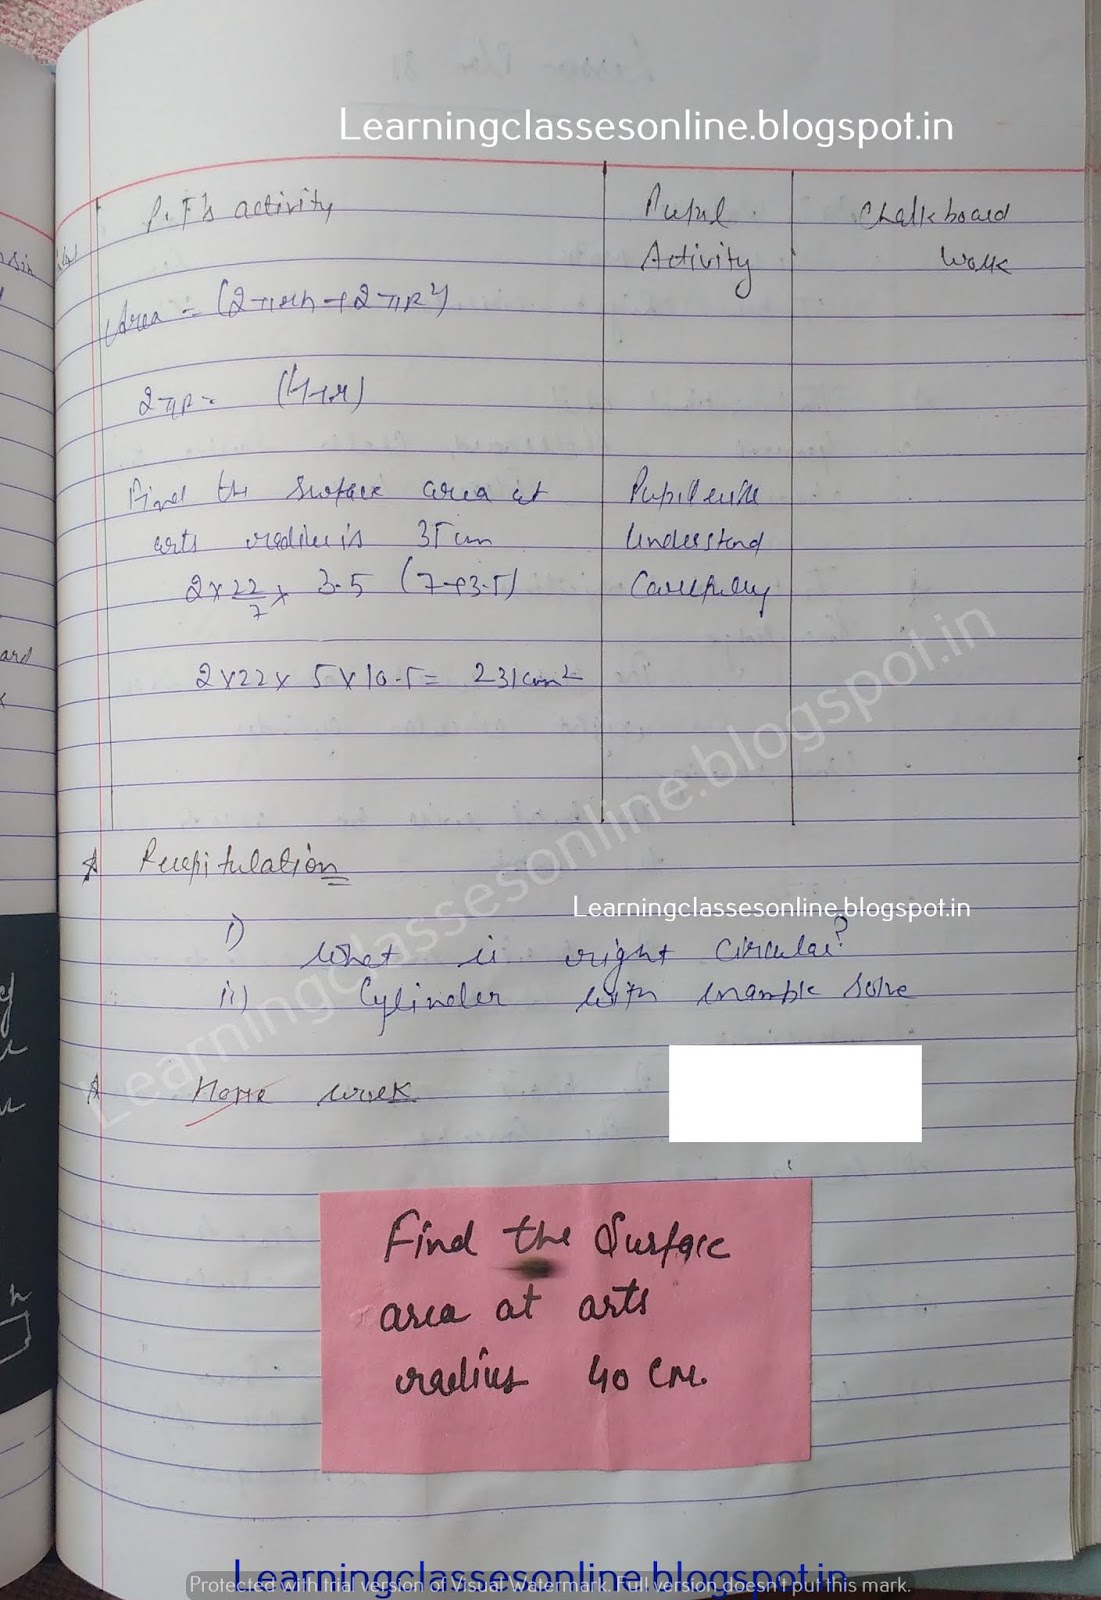 Learningclassesonline.blogspot.in
P.T's activity
Pupil Activity
Chalkboard work
Area = (2πrh + 2πr²)
2πr = (h+r)
Find the surface area at
arts radius is 35 cm
2 × 22/7 × 3.5 (7+3.5)
2 × 22 × 5 × 10.5 = 231 cm²
Pupil will
Understand
Carefully
Learningclassesonline.blogspot.in
Recapitulation
i) What is right circular?
ii) Cylinder with example solve
Learningclassesonline.blogspot.in
Home work
Find the Surface
area at arts
radius 40 cm.
Learningclassesonline.blogspot.in
Protected with trial version of Visual Watermark. Full version doesn't put this mark.